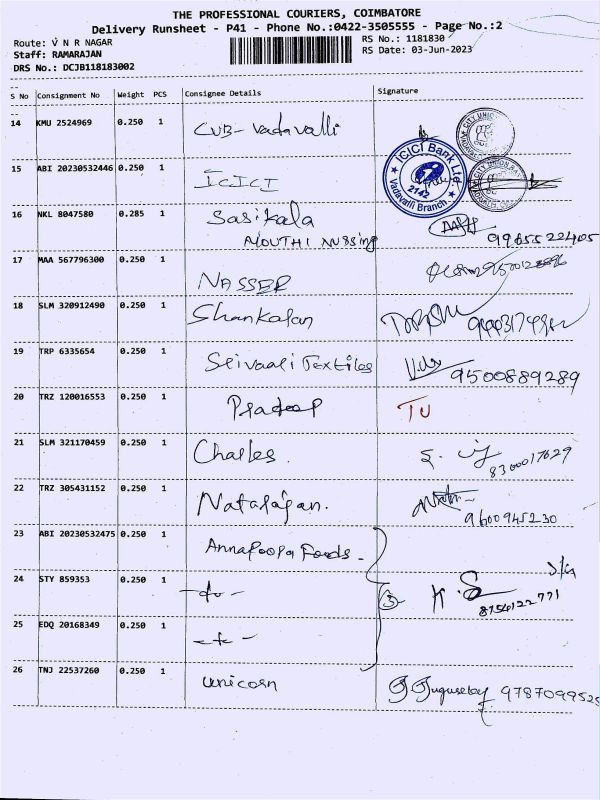 THE PROFESSIONAL COURIERS, COIMBATORE
Delivery Runsheet - P41 - Phone No.:0422-3505555 - Page No.:2
Route: V N R NAGAR
RS No.: 1181830
Staff: RAMARAJAN
RS Date: 03-Jun-2023
DRS No.: DCJB118183002
S No Consignment No Weight PCS Consignee Details Signature
14 KMU 2524969 0.250 1 CUB- Vadavalli
15 ABI 20230532446 0.250 1 ICICI
ICICI Bank Ltd. 2142 Vadavalli Branch
16 NKL 8047580 0.285 1 Sasikala
MOUTHI NURSING 9965522405
17 MAA 567796300 0.250 1 NASSER
18 SLM 320912490 0.250 1 Shankalan
19 TRP 6335654 0.250 1 Textiles 9500889289
20 TRZ 120016553 0.250 1 Pradeep TU
21 SLM 321170459 0.250 1 Charles. 8300017629
22 TRZ 305431152 0.250 1 Natarajan. 9600945230
23 ABI 20230532475 0.250 1 Annapoorna Foods -
24 STY 859353 0.250 1 -do- 3 8754122771
25 EDQ 20168349 0.250 1
26 TNJ 22537260 0.250 1 Unicorn 9787099525